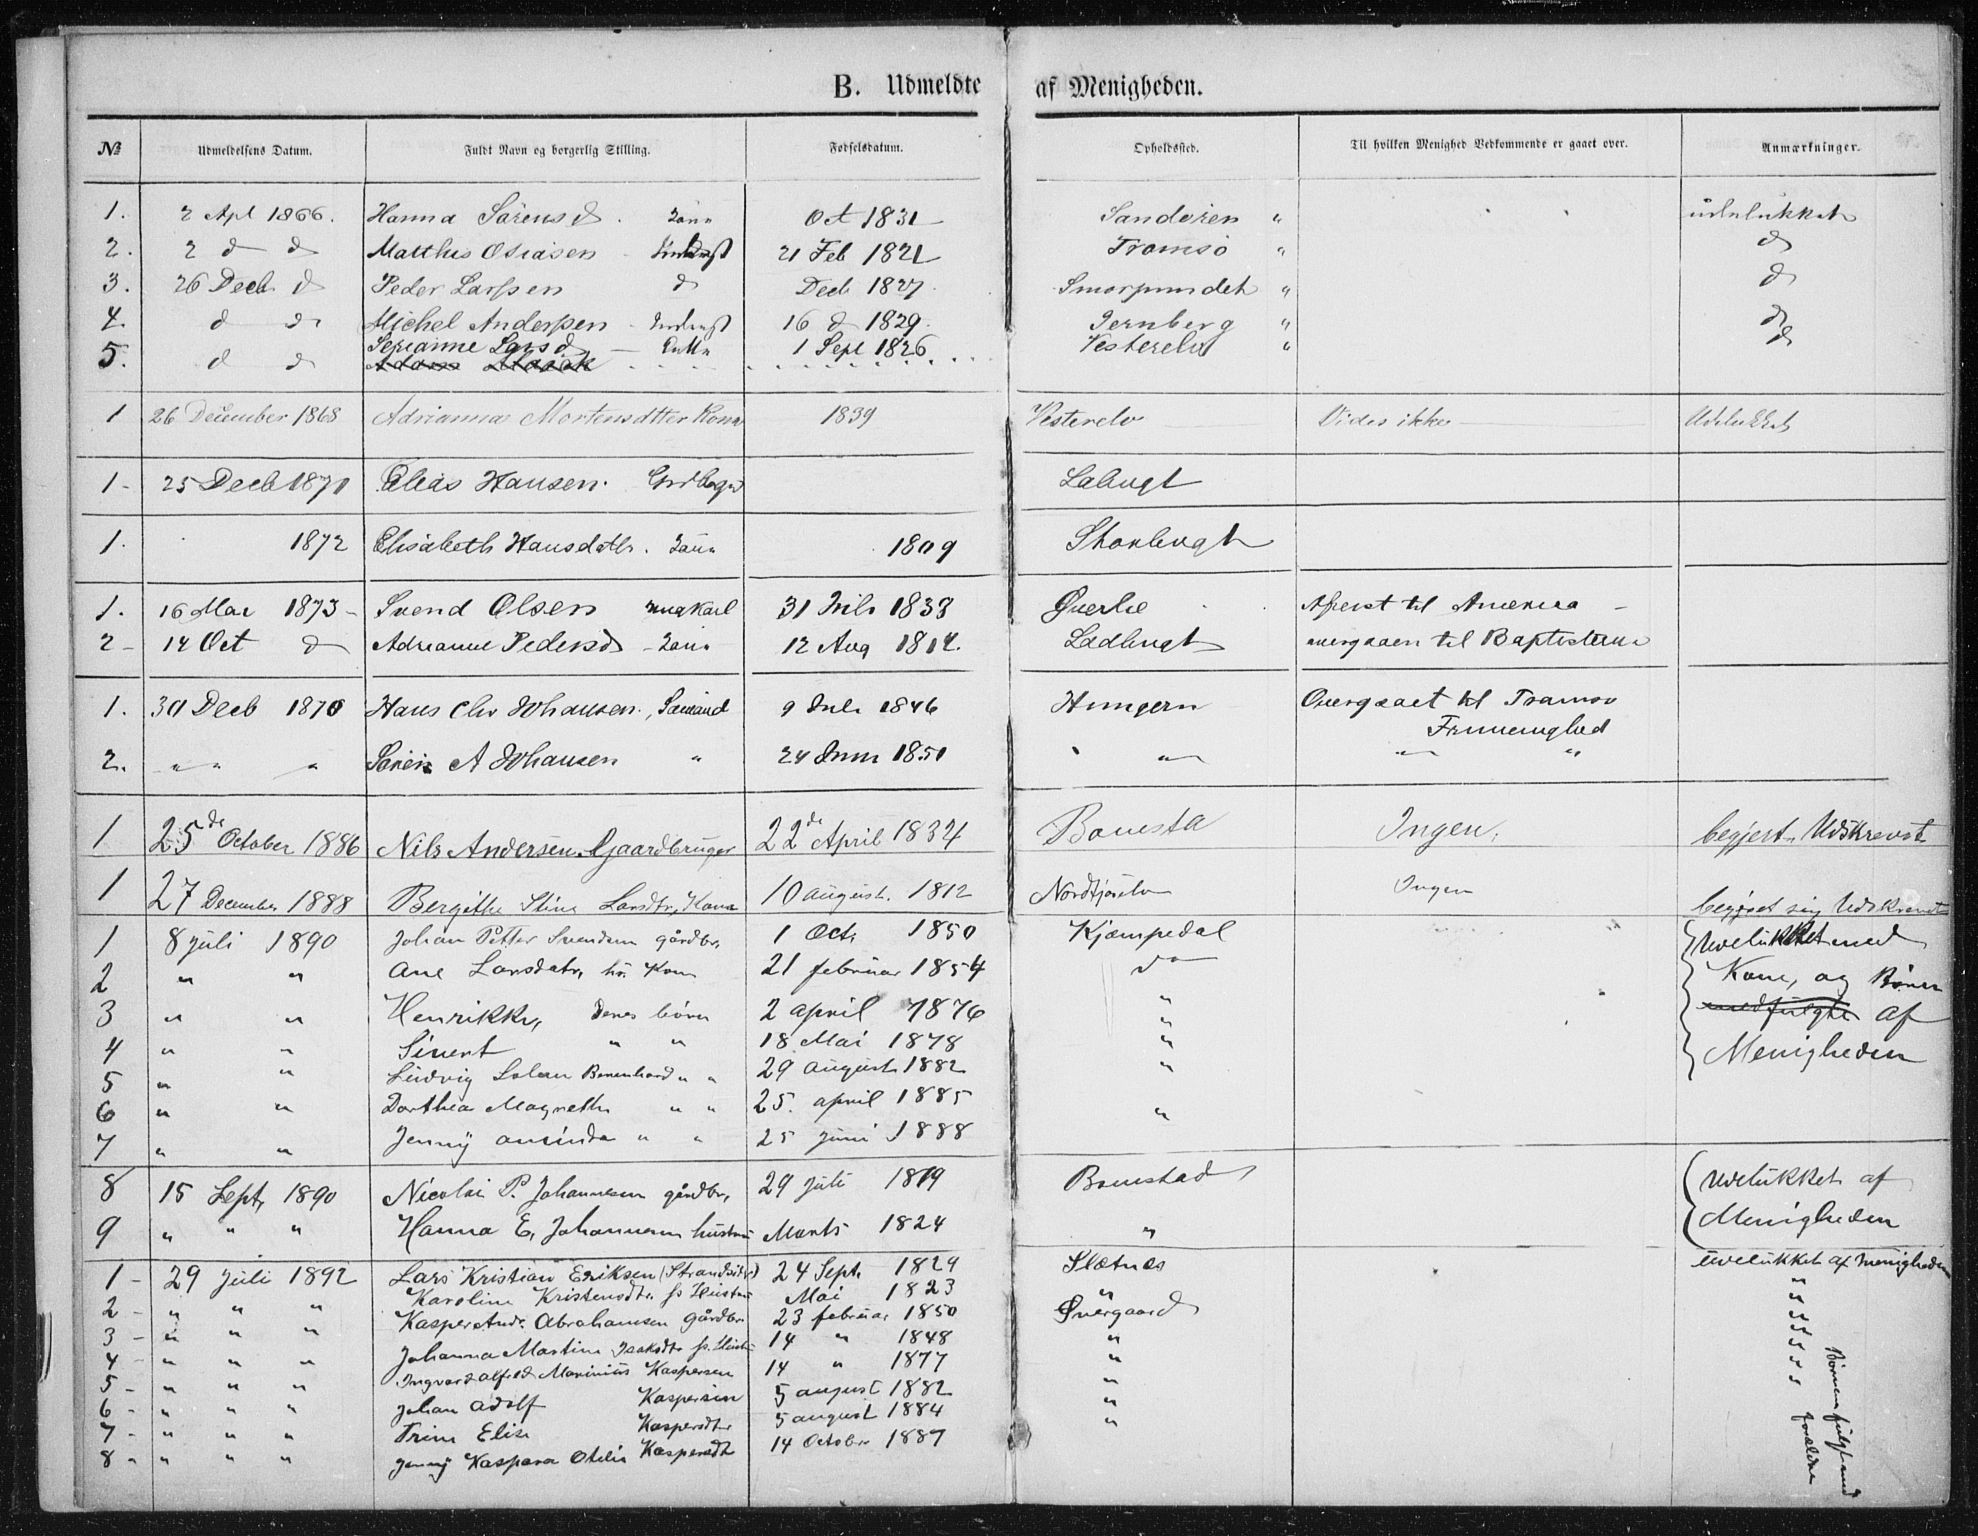 B. Udmeldte af Menigheden.
№ Udmeldelsens Datum. Fuldt Navn og borgerlig Stilling. Fødselsdatum. Opholdssted. Til hvilken Menighed Vedkommende er gaaet over. Anmærkninger.
1. 2 Apl 1866. Hanna Sørensd Oct 1831 Sandøren " udelukket
2. 2 d d Matthis Osiasen 21 Feb 1821 Tromsø " d
3. 26 Decb d Peder Larssen d Decb 1827 " d
4. d d Michel Anderssen 16 d 1829 Jernberg " d
5. d d Larsd 1 Sept 1826 Vesterelv " d
1 26 December 1868 Adrianna Mortensdtter Kone 1839 Vesterelv Vides ikke Udelukket
1- 25 Decb 1871 Elias Hansen. Labugt
1. 1872 Elisabeth Hansdatr. 1809
1. 16 Mai 1873- Svend Olsen ungkarl 31 Juli 1833 Afreist til America -
2- 14 Oct d Adrianne Pedersd 12 Aug 1814. Ladbugt overgaaen til Baptisterne
1. 30 Decb 1870 Hans Chr Johansen., Sømand 9 Juli 1846 Hungern Overgaaet til Tromsø
Frimenighed
2. " " " Søren A Johansen " 24 Juni 1850 " " "
1 25de October 1886 Nils Andersen. Gaardbruger 22de April 1834 Bonesta Ingen. begjert Udskrevet
1 27 December 1888 Bergithe Stine Larsdtr, Kone 10 august. 1812 Nordfjorelv Ingen begjeret sig Udskrevet
1 8 juli 1890 Johan Petter Svendsen gårdbr. 1 Oct. 1850 Kjæmpedal Uvelukket med
2 " " Ane Larsdatr, hs. Kone 21 februar 1854 do Kone, og Børn
3 " " Henrikke, Deres børn 2 april 1876 " medfulgte af
4 " " Sivert " " 18 Mai 1878 " Menigheden
5 " " Ludvig Bernhard " " 29 august 1882 "
6 " " Dorthea Magrethe " " 25. april 1885 "
7 " " Jenny " " 25 juni 1888
8 15 Sept, 1890 Nicolai P. Johannesen gårdbr, 29 juli 1819 Bonestad Uvelukket af
9 " " " Hanna E, Johannesen hustru Marts 1824 " Menigheden
1- 29 juli 1892 Lars Kristian Eriksen (Strandsidr) 24 Sept. 1829 Slætnes uvelukket af menigheden
2- " " " Karoline Kristensdtr. hs Hustru Mai 1823 " "
3- " " " Kasper Andr. Abrahamsen gårdbr. 23 februar 1850 Øvergaard "
4- " " " Johanna Martine Isaksdtr hs. Hustru 14 " 1848 " "
5- " " " Ingvard Alfred Marinius Kaspersen 14 " 1877 " "
6- " " " Johan Adolf Kaspersen 5 august 1882 " "
7- " " " Trine Elise Kaspersdtr 5 august 1884 " "
8- " " " Jenny Kaspara Otelie Kaspersdtr 14 October 1887
Børnene fulgt med
forældre